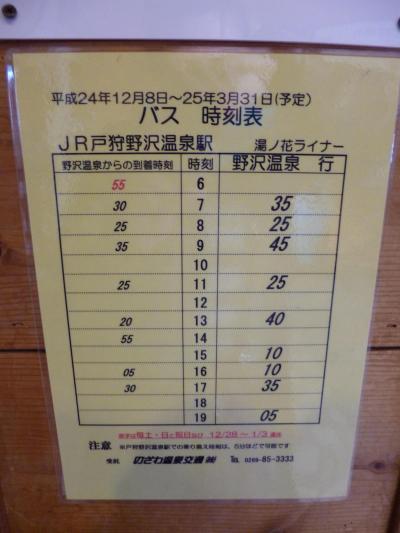 平成24年12月8日～25年3月31日(予定)
バス 時刻表
JR戸狩野沢温泉駅 湯ノ花ライナー
野沢温泉からの到着時刻 時刻 野沢温泉 行
55 6
30 7 35
25 8 25
35 9 45
10
25 11 25
12
20 13 40
55 14
15 10
05 16 10
30 17 35
18
19 05
赤字は毎土・日と祝日及び 12/28～1/3 運休
注意 ※戸狩野沢温泉駅での乗り換え時間は、5分ほどで可能です
のざわ温泉交通㈱ TEL 0269-85-3333